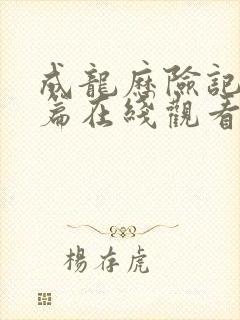 威龍歷險記
篇在綫觀看
楊存虎